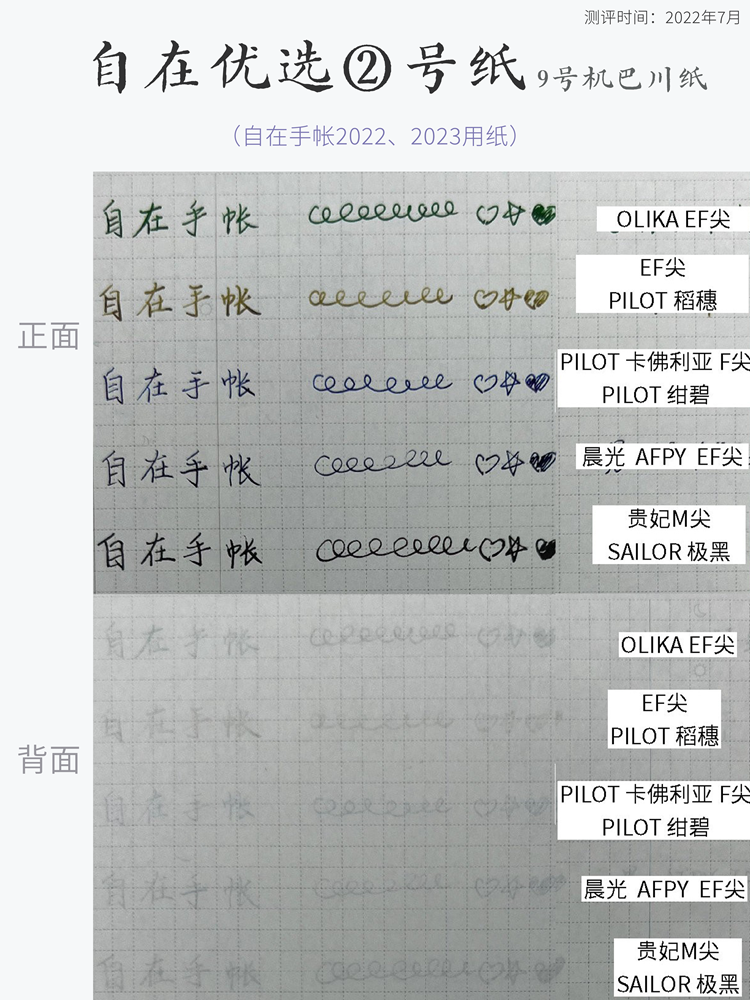 测评时间：2022年7月
自在优选②号纸 9号机巴川纸
（自在手帐2022、2023用纸）
正面
自在手帐
OLIKA EF尖
自在手帐
EF尖
PILOT 稻穗
自在手帐
PILOT 卡佛利亚 F尖
PILOT 绀碧
自在手帐
晨光 AFPY EF尖
自在手帐
贵妃M尖
SAILOR 极黑
背面
自在手帐
OLIKA EF尖
自在手帐
EF尖
PILOT 稻穗
自在手帐
PILOT 卡佛利亚 F尖
PILOT 绀碧
自在手帐
晨光 AFPY EF尖
自在手帐
贵妃M尖
SAILOR 极黑